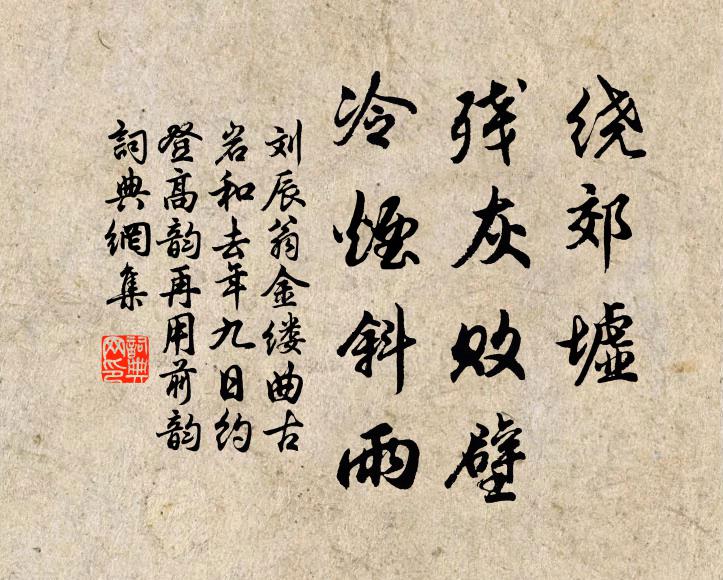 绕郊墟
残灰败壁
冷烟斜雨
刘辰翁金缕曲古
岩和去年九日约
登高韵再用前韵
詞典網集
詞典網印